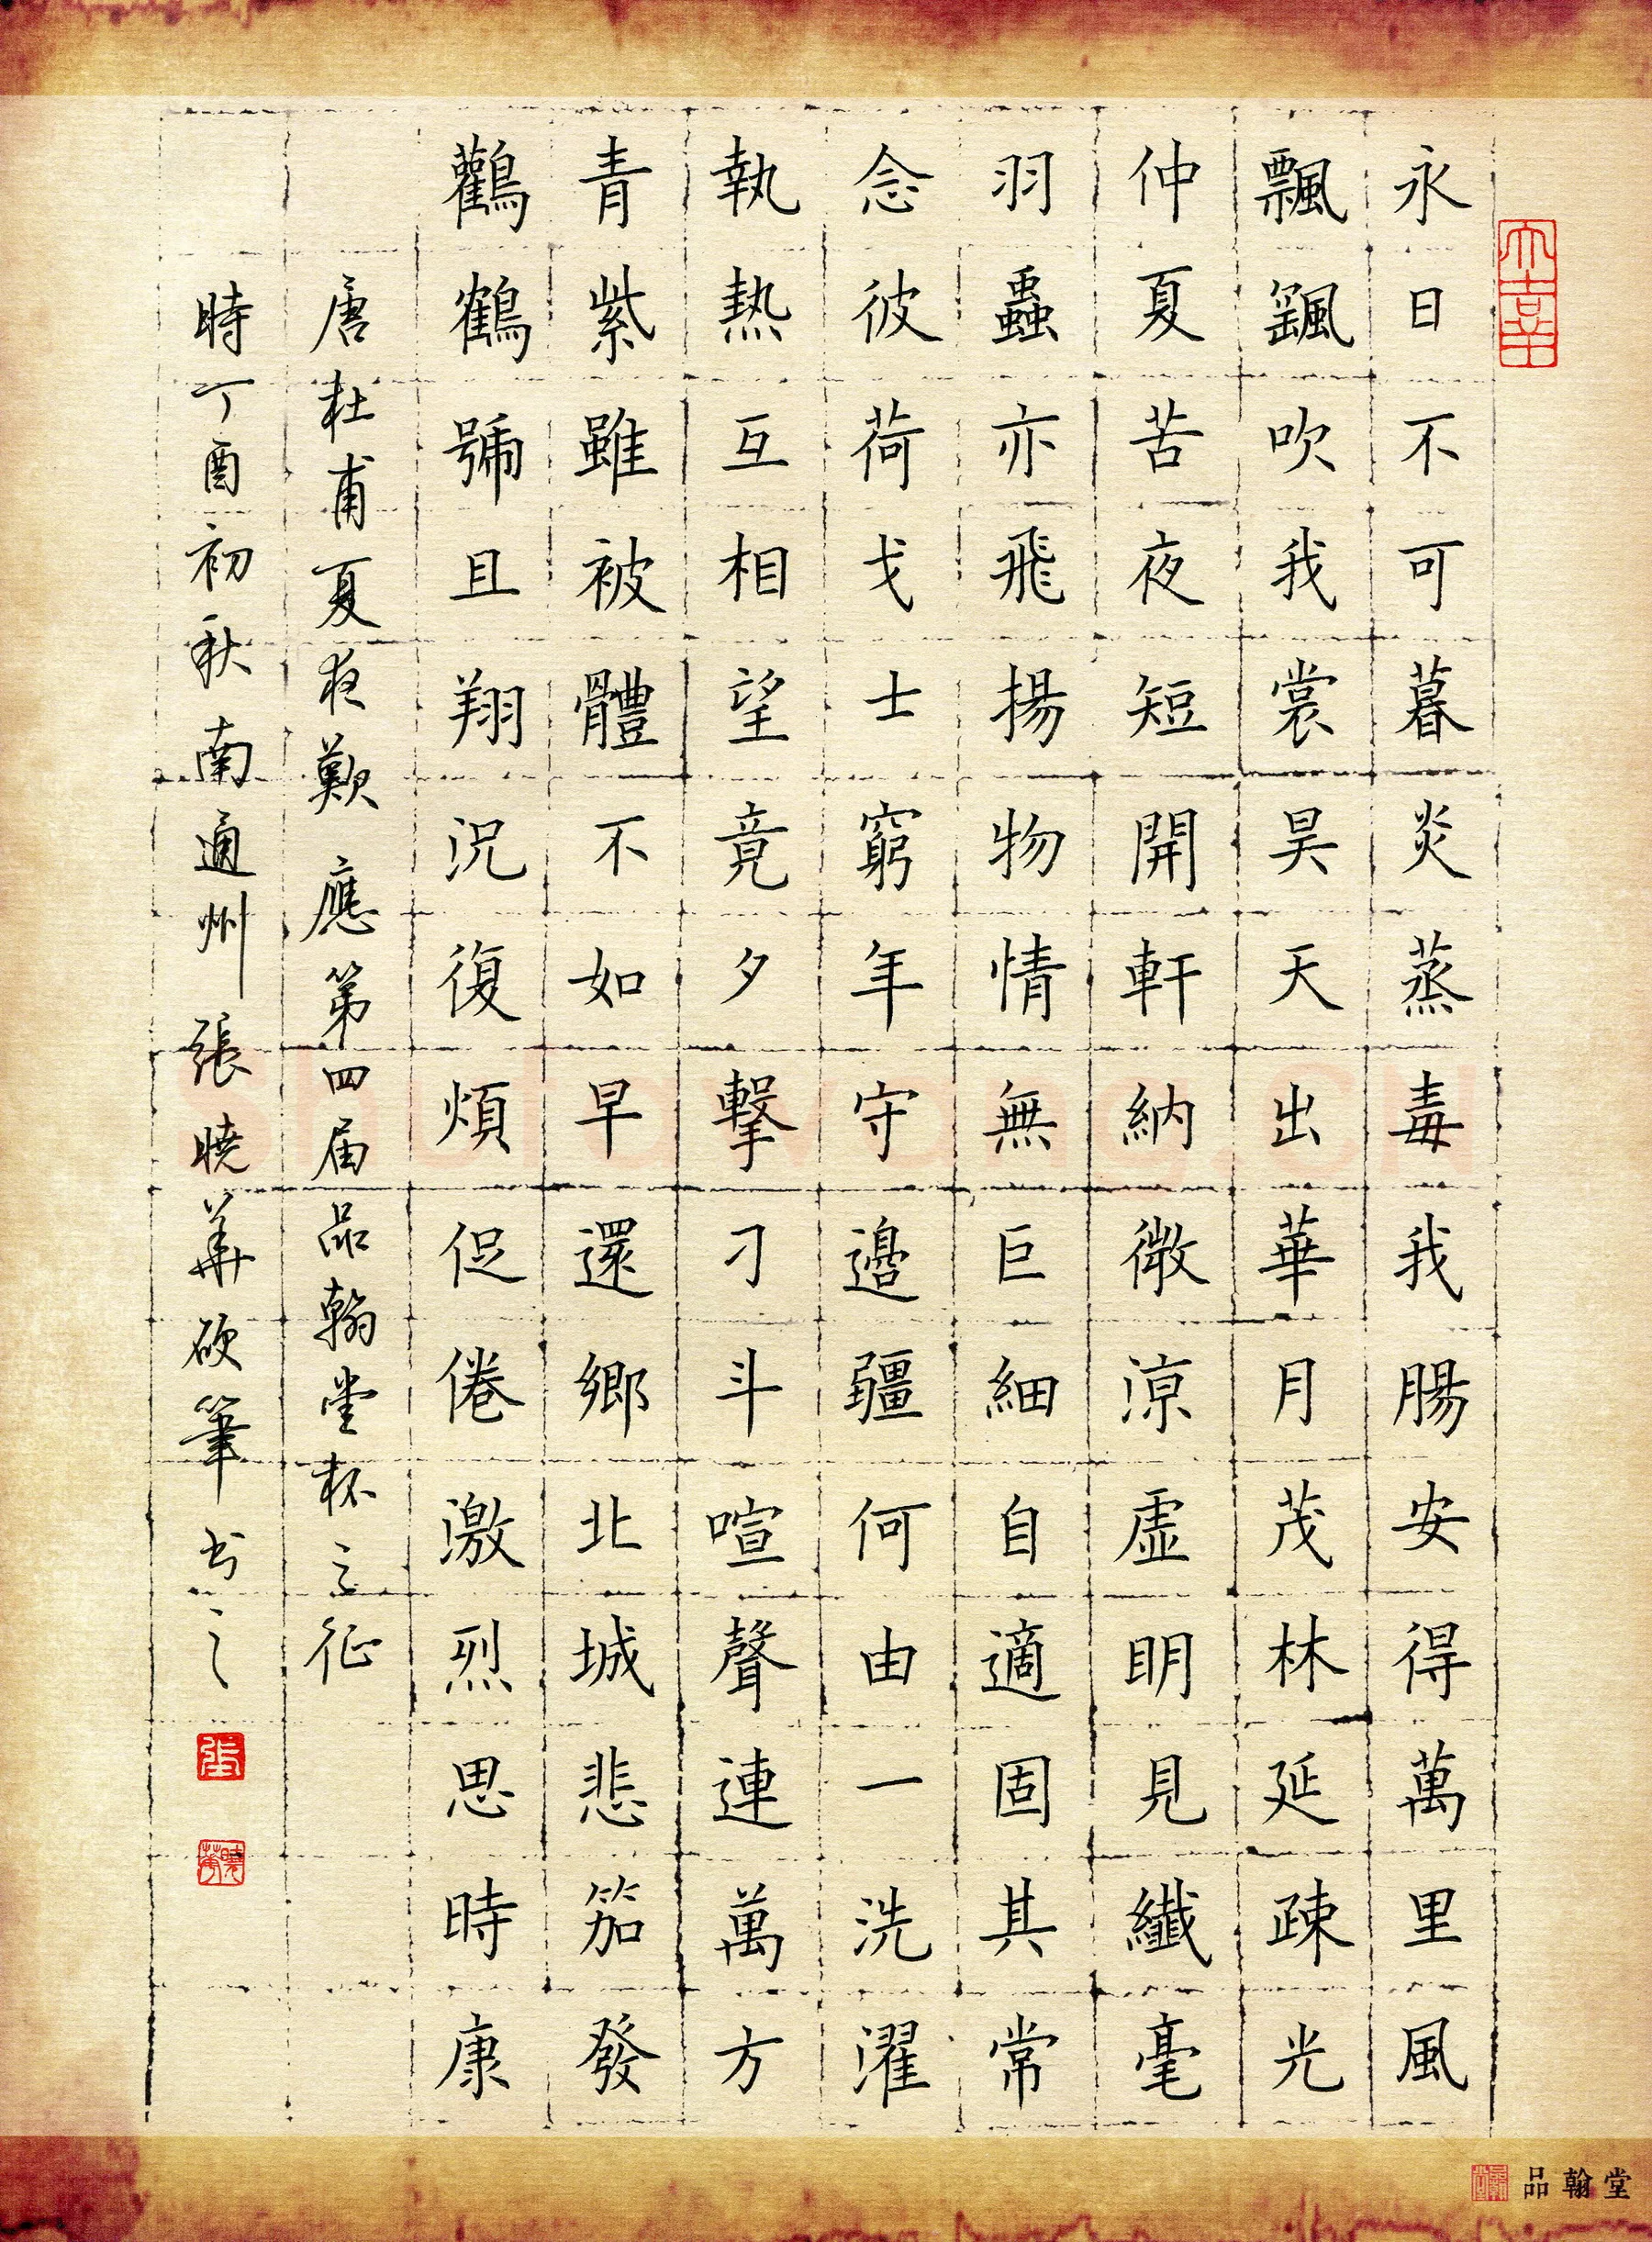 永日不可暮炎蒸毒我腸安得萬里風
飄颻吹我裳昊天出華月茂林延疎光
仲夏苦夜短開軒納微涼虛明見纖毫
羽蟲亦飛揚物情無巨細自適固其常
念彼荷戈士窮年守邊疆何由一洗濯
執熱互相望竟夕擊刁斗喧聲連萬方
青紫雖被體不如早還鄉北城悲笳發
鸛鶴號且翔況復煩促倦激烈思時康
唐杜甫夏夜歎 應第四届品翰堂杯之征
時丁酉初秋南通州張曉華硬筆书之
品翰堂